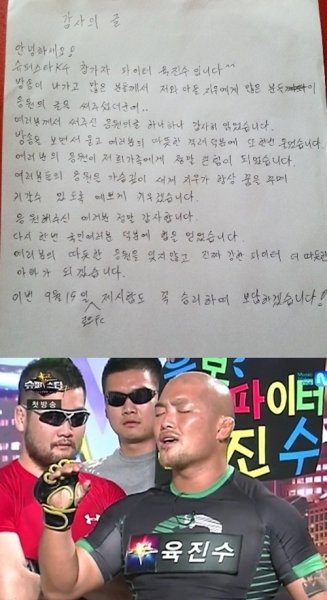 감사의 글
안녕하세요
슈퍼스타K4 참가자 파이터 육진수입니다^^
방송이 나가고 많은 분들께서 저와 아들 지우에게 많은 분들이
응원의 글을 써주셨더군여..
여러분께서 써주신 응원의글 하나하나 감사히 읽었습니다.
방송을 보면서 울고 여러분의 따뜻한 격려 덕분에 또한번 울었습니다.
여러분의 응원이 저희가족에게 정말 큰힘이 되었습니다.
여러분들의 응원을 가슴깊이 새겨 지우가 항상 꿈을 꾸며
커갈수 있도록 예쁘게 키우겠습니다.
응원해주신 여러분 정말 감사합니다.
다시 한번 국민여러분 덕분에 힘을 얻었습니다.
여러분의 따뜻한 응원을 잊지않고 진짜 강한 파이터 더 따뜻한
아빠가 되겠습니다.
이번 9월 15일 제시합도 꼭 승리하여 보답하겠습니다!!
로드FC
슈퍼스타
첫방송
응모?
파이터
진수
육진수